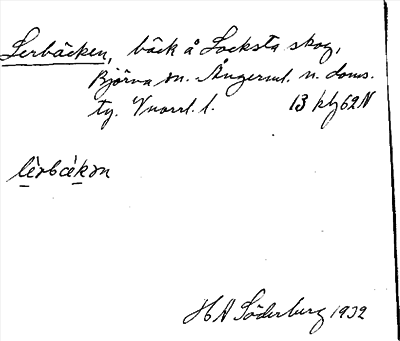 Lerbäcken, bäck å Locksta skog,
Björna sn. Ångerml. n. doms.
tg. V.norrl. l. 13 kbf 62 N
lèrbæ̀kɔn
H A Söderburg 1932